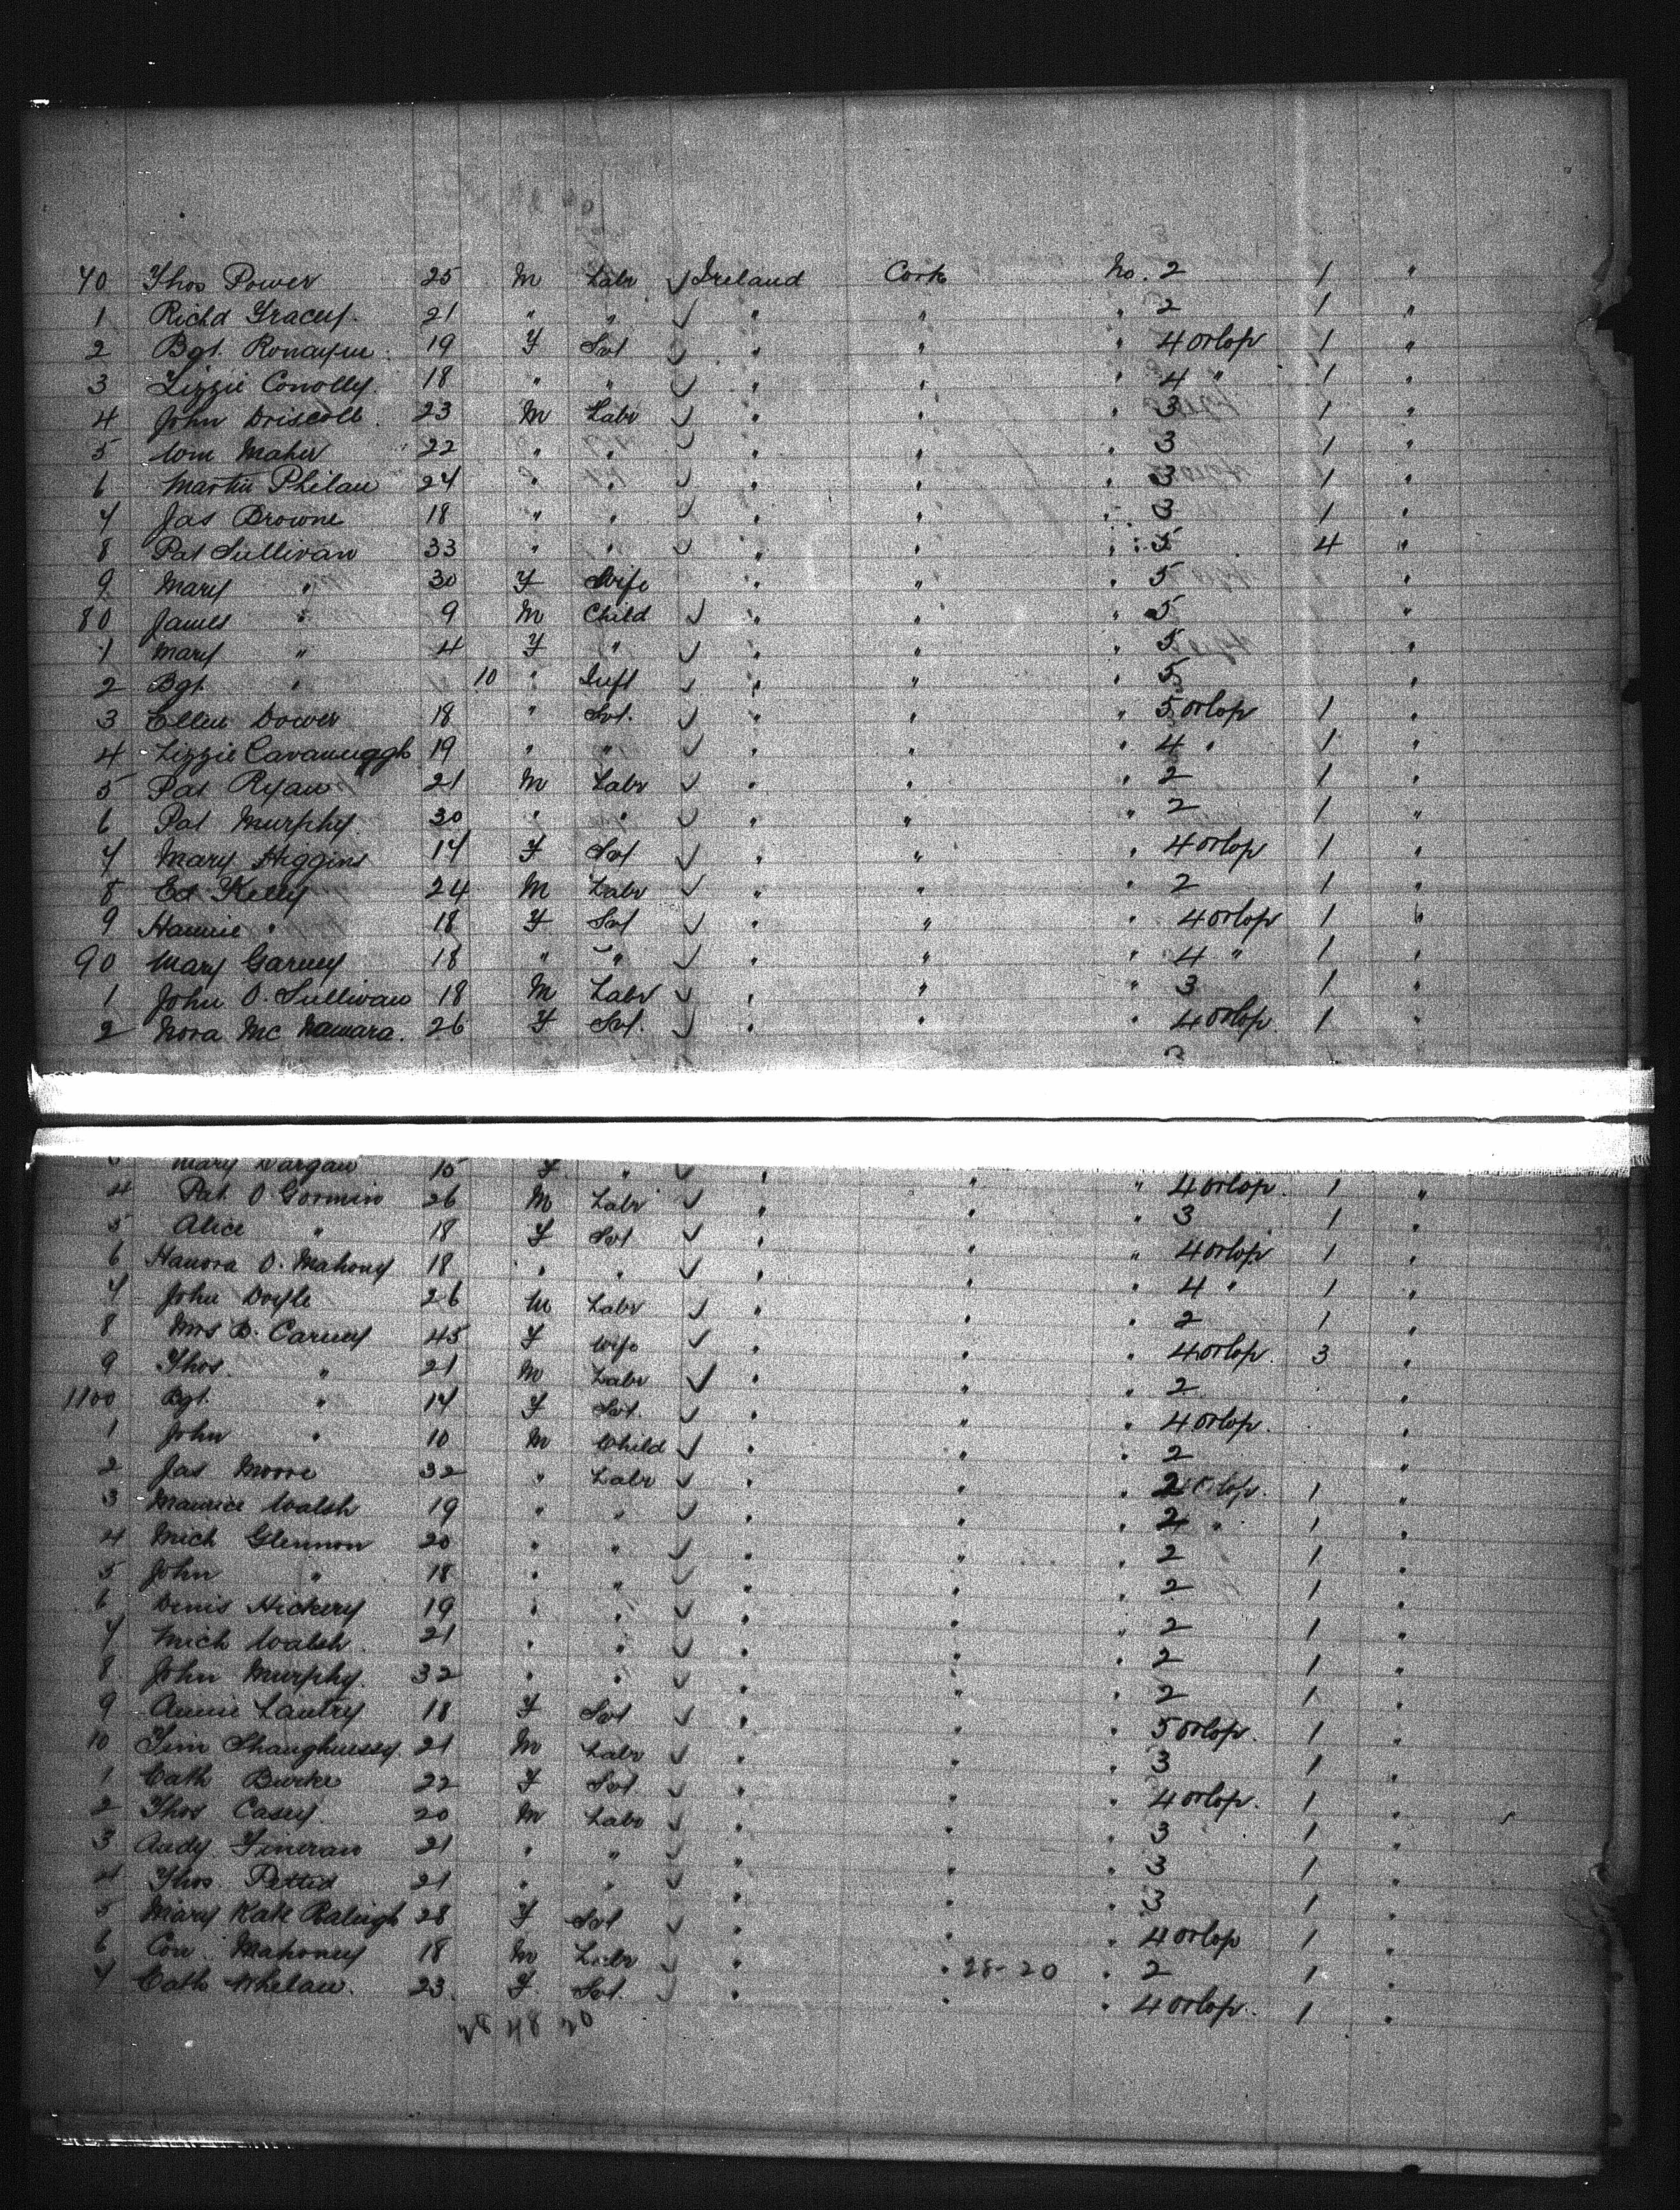 70 Thos Power 25 M Labr ✓ Ireland Cork No. 2 1 "
1 Richd Gracey. 21 " " ✓ " " " 2 1 "
2 Bgt. Ronayne 19 F Svt ✓ " " " 4 orlop 1 "
3 Lizzie Conolly. 18 " " ✓ " " " 4 " 1 "
4 John Driscoll. 23 M Labr ✓ " " " 3 1 "
5 Wm Maher 22 " " ✓ " " " 3 1 "
6 Martin Philan 24 " " ✓ " " " 3 1 "
7 Jas Browne 18 " " ✓ " " " 3 1 "
8 Pat Sullivan 33 " " ✓ " " " 5 4 "
9 Mary " 30 F Wife " " " 5 "
80 James " 9 M Child ✓ " " " 5 "
1 Mary " 4 F " ✓ " " " 5 "
2 Bgt. " 10 " Inft ✓ " " " 5 "
3 Ellen Dower 18 " Svt. ✓ " " " 5 orlop 1 "
4 Lizzie Cavanuggh 19 " " ✓ " " " 4 " 1 "
5 Pat Ryan 21 M Labr ✓ " " " 2 1 "
6 Pat Murphy. 30 " " ✓ " " " 2 1 "
7 Mary Higgins 17 F Svt ✓ " " " 4 orlop 1 "
8 Ed Kelly 24 M Labr ✓ " " " 2 1 "
9 Hannie " 18 F Svt ✓ " " " 4 orlop 1 "
90 Mary Garvey 18 " " ✓ " " " 4 " 1 "
1 John O. Sullivan 18 M Labr ✓ " " " 3 1 "
2 Nora Mc Namara. 26 F Svt. ✓ " " " 4 orlop. 1 "
Mary Dargan 15 F. " ✓ " " " 4 orlop. 1 "
4 Pat O Gormin 26 M Labr ✓ " " " 3 1 "
5 Alice " 18 F Svt ✓ " " " 4 orlop 1 "
6 Hanora O. Mahony 18 " " ✓ " " " 4 " 1 "
7 John Doyle 26 M Labr ✓ " " " 2 1 "
8 Mrs B. Carney 45 F Wife ✓ " " " 4 orlop. 3 "
9 Thos. " 21 M Labr ✓ " " " 2 "
1100 Bgt. " 17 F Svt. ✓ " " " 4 orlop. "
1 John " 10 M Child ✓ " " " 2 "
2 Jas Moore 32 " Labr ✓ " " " 2 orlop. 1 "
3 Maurice Walsh 19 " " ✓ " " " 2 " 1 "
4 Mich Glennon 20 " " ✓ " " " 2 1 "
5 John " 18 " " ✓ " " " 2 1 "
6 Denis Hickery 19 " " ✓ " " " 2 1 "
7 Mich Walsh. 21 " " ✓ " " " 2 1 "
8 John Murphy. 32 " " ✓ " " " 2 1 "
9 Annie Lantry 18 F Svt ✓ " " " 5 orlop. 1 "
10 Tim Shaughnessy. 21 M Labr ✓ " " " 3 1 "
1 Cath Burke 22 F Svt. ✓ " " " 4 orlop. 1 "
2 Thos Casey. 20 M Labr ✓ " " " 3 1 "
3 Andy Fineran 21 " " ✓ " " " 3 1 "
4 Thos. 21 " " ✓ " " " 3 1 "
5 Mary Kate Raleigh 28 F Svt ✓ " " " 4 orlop 1 "
6 Con. Mahoney 18 M Labr ✓ " " 28-20 " 2 1 "
7 Cath Whelan. 23. F. Svt. ✓ " " " 4 orlop. 1 "
28 48 20